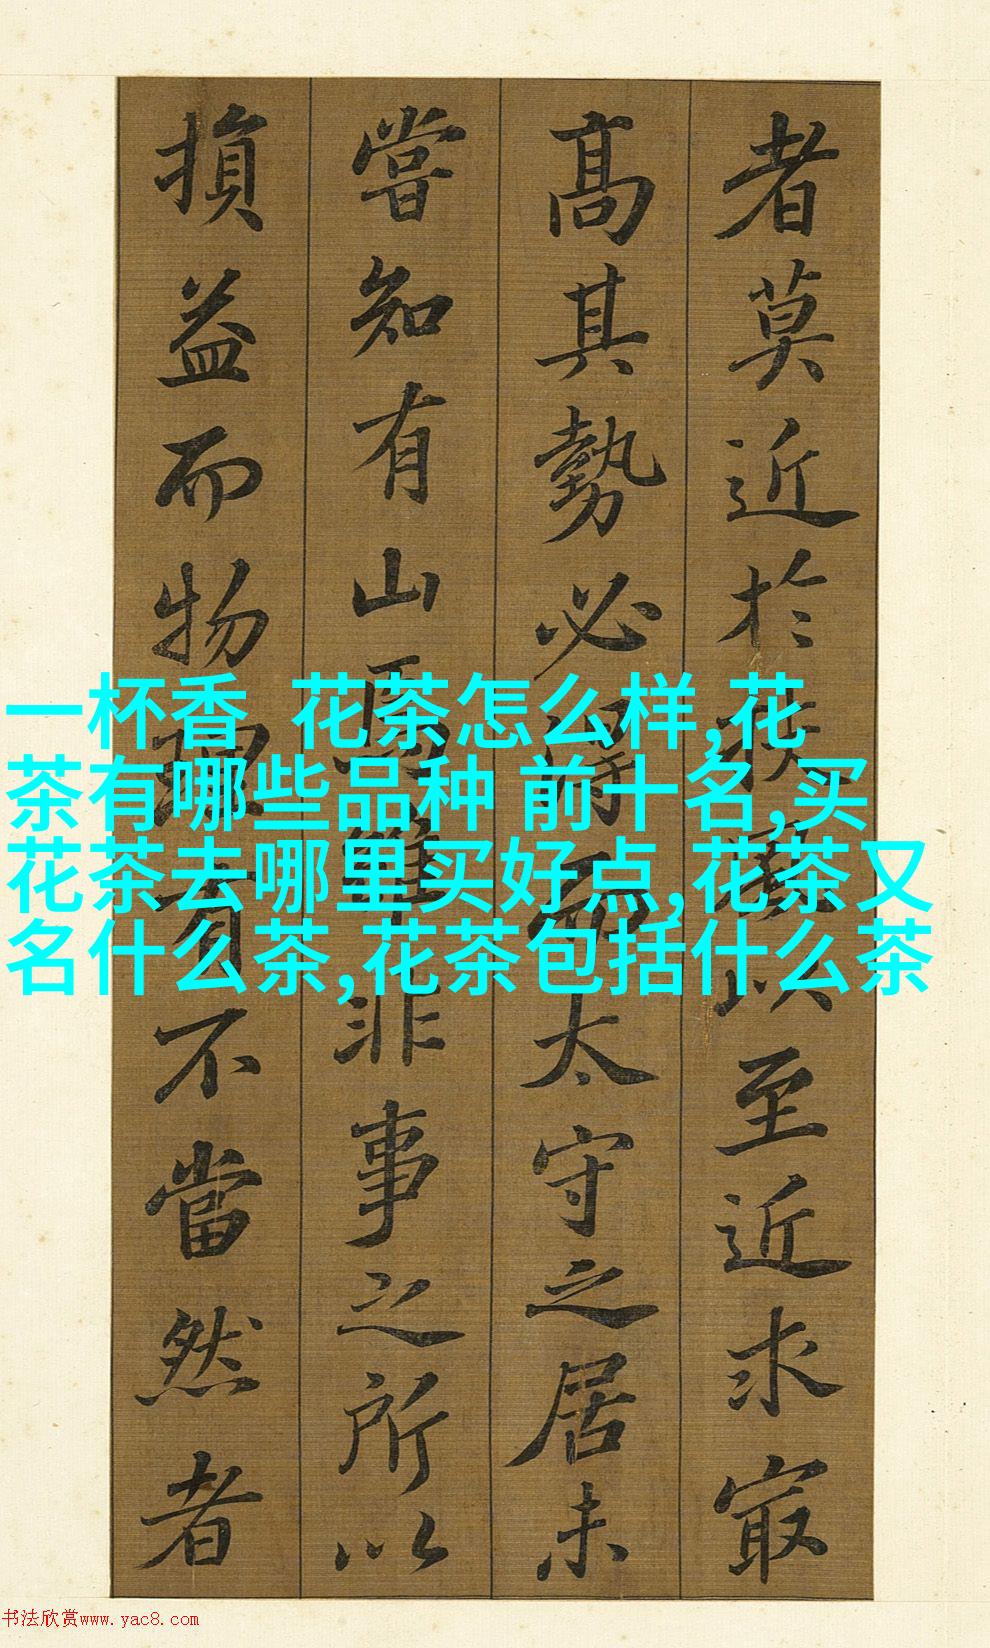 者莫近於扶風以至近求最
高其勢必得而太守之居未
嘗知有山焉雖非事之所以
損益而物理有不當然者
一杯香 花茶怎么样,花
茶有哪些品种 前十名,买
花茶去哪里买好点,花茶又
名什么茶,花茶包括什么茶
书法欣赏www.yac8.com